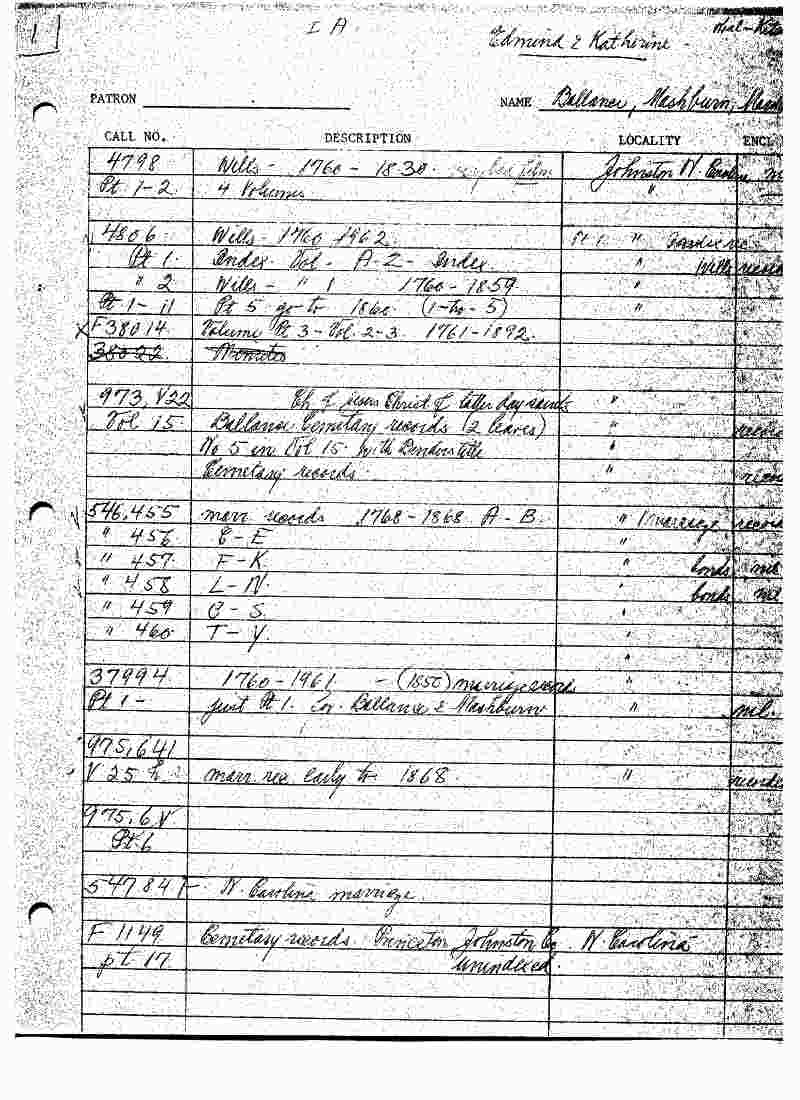 1
I A
Edmund & Katherine
PATRON
NAME Ballance, Mashburn,
CALL NO. DESCRIPTION LOCALITY ENCL
4798 Wills - 1760 - 1830. film Johnston N. Caroline
Pt 1-2 4 Volumes "
4806 Wills - 1760 1962 Pt 1 "
Pt 1. Index Vol - A-Z - Index. " Wills
" 2 Wills - " 1 1760-1859 "
Pt 1-11 Pt 5 go to 1860 (1-to-5) "
X F38014 Volume Pt 3-Vol. 2-3. 1761-1892.
38022 Minutes
973, V22 Ch of jesus Christ of latter day saints "
Vol 15 Ballance Cemetary records (2 leaves) "
No 5 in Vol 15 with Binders title "
Cemetary records "
546,455 marr records 1768-1868 A-B. " marriage
" 456 C-E "
" 457 F-K " bonds mil
" 458 L-N " bonds mil
" 459 O-S. "
" 460 T-Y. "
"
37994 1760-1961 - (1850) marriage records "
Pt 1- just Pt 1. for Ballance & Mashburn " mil.
975,641
V 25 h marr rec early to 1868 " records
975,6 V
Pt 6
547847 N. Carolina marriage
F 1149 Cemetary records Princeton Johnston Co N. Carolina
pt 17 unindexed.